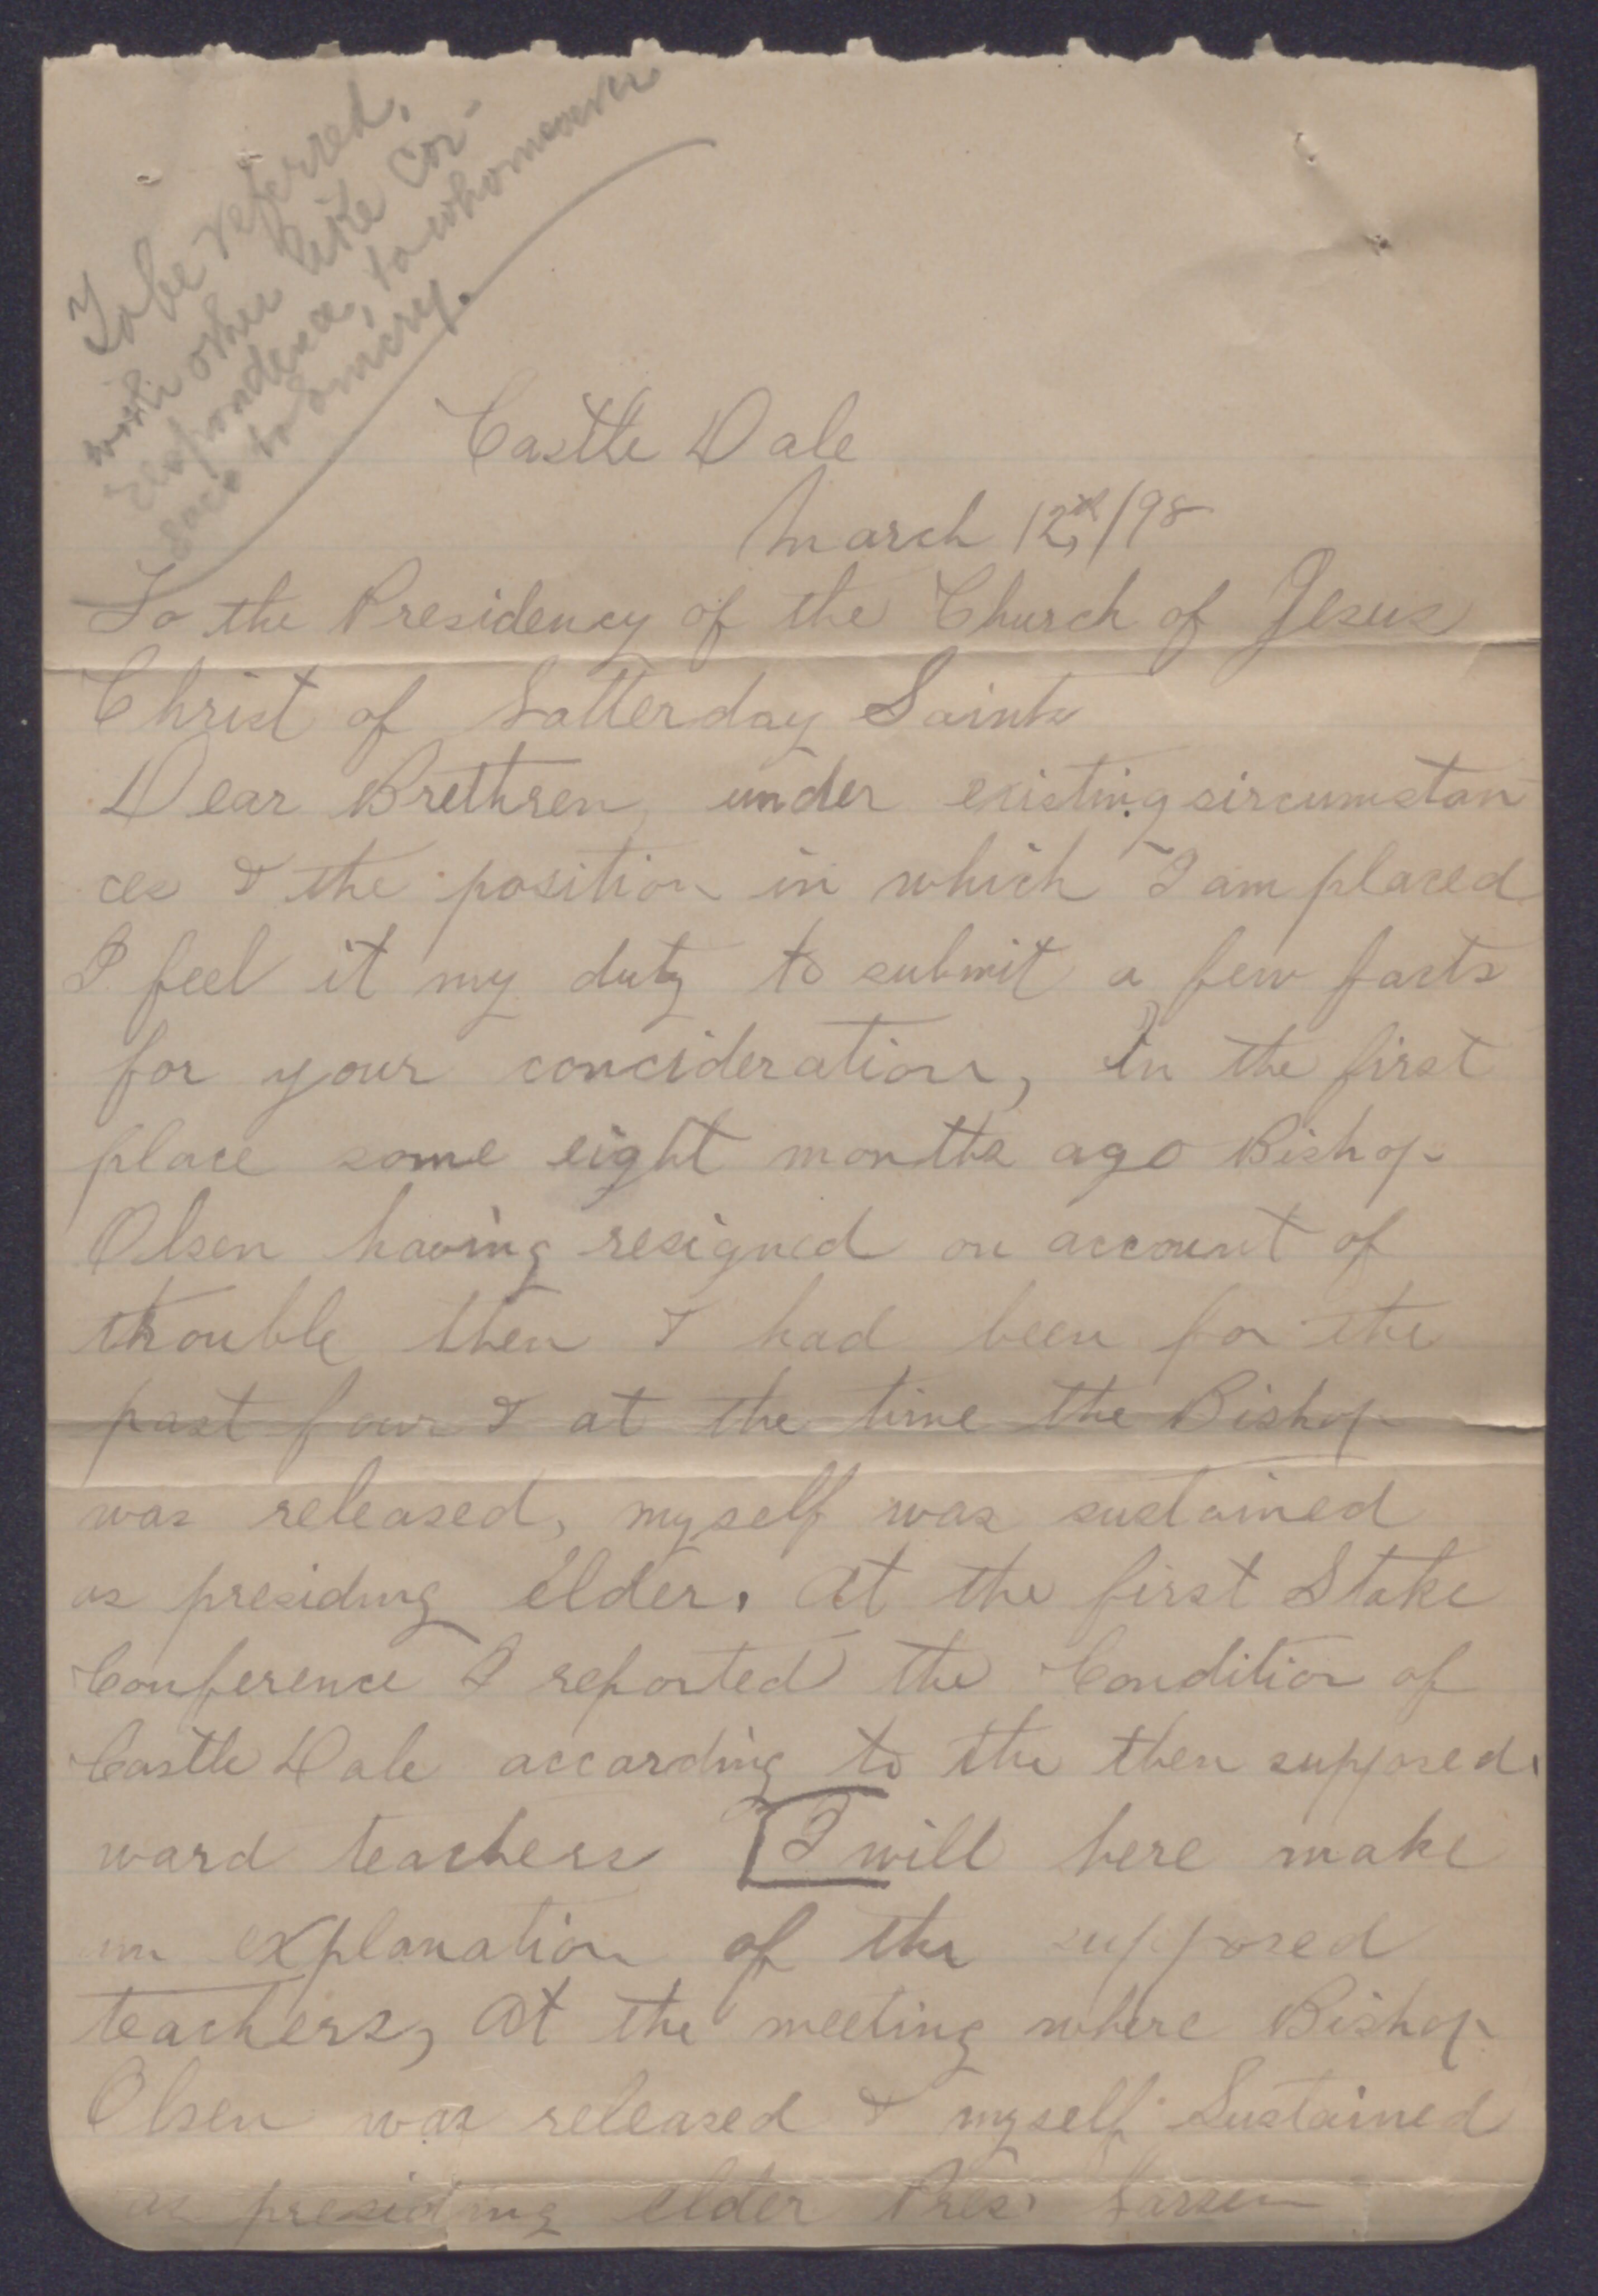 To be referred,
with other like cor-
respondence, to whomsoever
goes to Emery.
Castle Dale
March 12th,/98
To the Presidency of the Church of Jesus
Christ of Latterday Saints
Dear Brethren, under existing circumstan
ces & the position in which I am placed
I feel it my duty to submit a few facts
for your concideration, In the first
place some eight months ago Bishop
Olsen having resigned on account of
trouble then & had been for the
past four & at the time the Bishop
was released, myself was sustained
as presiding elder. At the first Stake
Conference I reported the Condition of
Castle Dale according to the then supposed
ward teachers I will here make
an explanation of the supposed
teachers, At the meeting where Bishop
Olsen was released & myself Sustained
as presiding elder Pres. Larsen